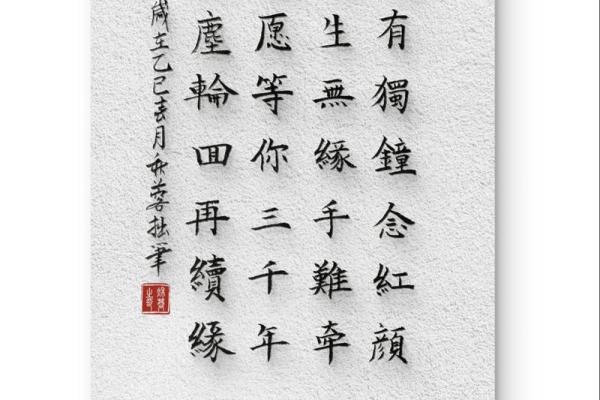 有獨鐘念紅顔
生無緣手難牽
愿等你三千年
塵輪囬再續緣
歲在乙巳春月蓉拙筆